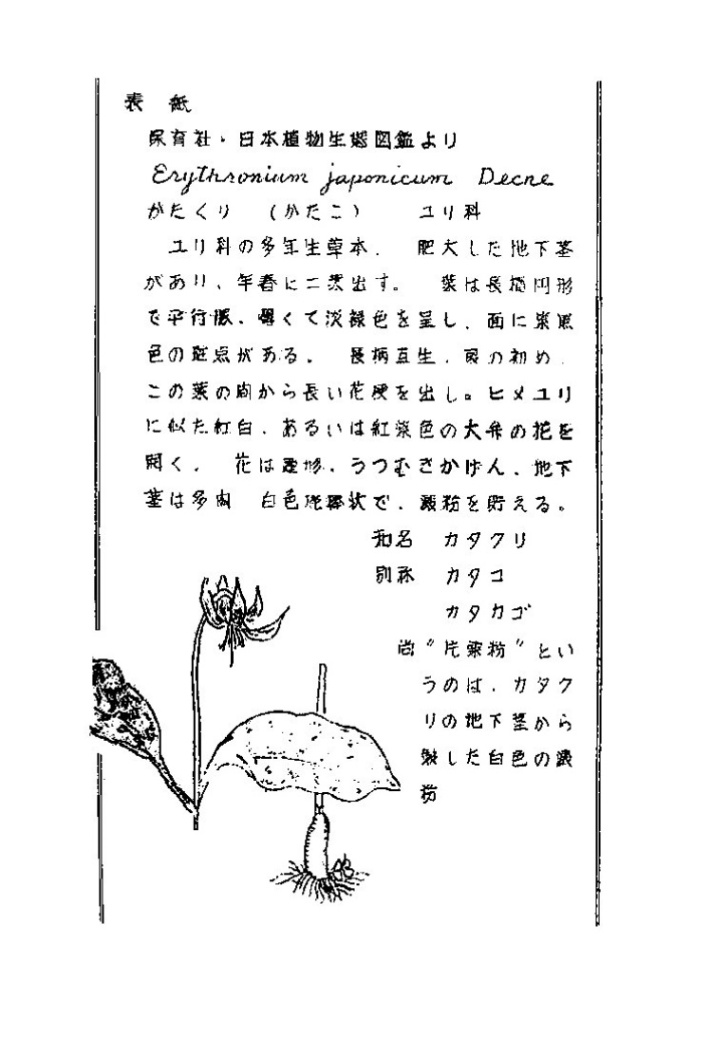 表 紙
保育社・日本植物生態図鑑より
Erythronium japonicum Decne
かたくり （かたこ） ユリ科
ユリ科の多年生草本． 肥大した地下茎
があり、年春に二葉出す。 葉は長楕円形
で平行脈、厚くて淡緑色を呈し、面に紫黒
色の斑点がある。 長柄直生．夏の初め．
この葉の間から長い花梗を出し。ヒメユリ
に似た紅白．あるいは紅紫色の大弁の花を
開く． 花は うつむきかげん、地下
茎は多肉 白色 状で、澱粉を貯える。
和名 カタクリ
別称 カタコ
カタカゴ
尚“片栗粉”とい
うのは．カタク
リの地下茎から
製した白色の澱
粉